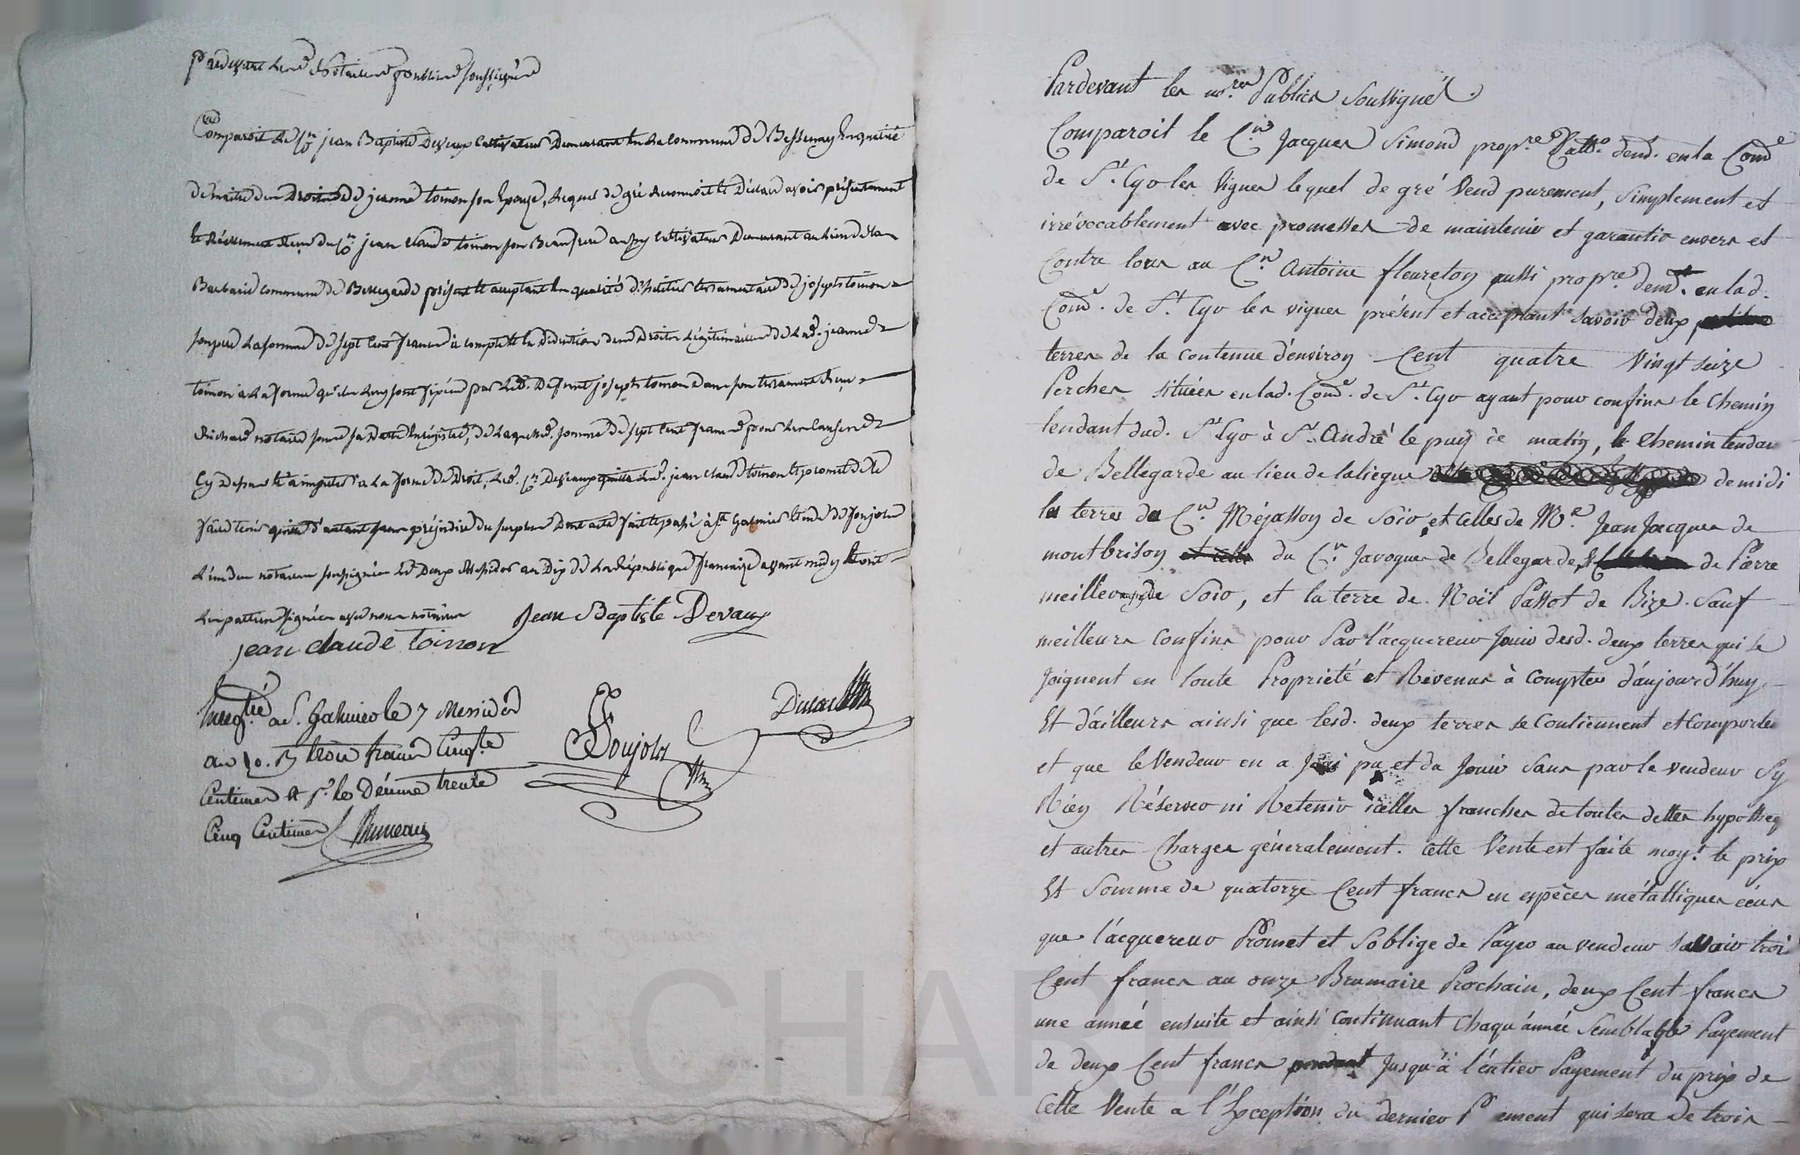 Pardevant Les Notaires publics soussignés
Comparoit Le Cn jean Baptiste Devaux Cultivateur Demeurant En La commune de Bessenay En qualité
de maitre des Droits de jeanne toinon son Epouse, Lequel de gré Reconnoit et Déclare avoir présentement
et Réellement Reçu du Cn jean Claude toinon son Beau frere aussy Cultivateur Demeurant au Lieu de La
Barbarie commune de Bellegarde présent et acceptant En qualité d'héritier testamentaire de joseph toinon
son pere La somme de sept Cent francs à compte et En déduction des Droits Légitimaires de Lad. jeanne
toinon à La forme qu'ils Luy sont fixés par Led. Defunt joseph toinon dans son testament Reçu
Richard notaire sous sa Datte Enregistré, de Laquelle somme de sept Cent francs pour Les Causes
Cy Dessus et à imputer à La forme de Droit, Led. Cn Devaux quitte Led. jean Claude toinon et promet de le
faire tenir quitte d'autant sans préjudice du surplus Dont acte fait et passé à St Galmier Etude de Poujolz
L'un des notaires soussignés Le Deux Messidor an Dix de La République françaize avant midy et ont
Les parties signé avec nous notaires Jean Baptiste Devaux
jean claude toinon
Enregtré a St. Galmier le 7 Messidor
an 10. R trois francs Cinqte
Centimes et pr. le Décime trente
Cinq Centimes
Poujolz
Pardevant les nores. Publics Soussignés.
Comparoit le Cn. Jacques Simond propre. demt. en la Come
de St. Cyr les Vignes lequel de gré Vend purement, Simplement et
irrévocablement avec promesses de maintenir et garantir envers et
Contre tous au Cn. Antoine fleureton aussi propre. demt. en lad.
Come. de St. Cyr les vignes présent et acceptant Savoir deux
terres de la contenue d'environ Cent quatre Vingt seize
Perches Situées en lad. Come. de St. Cyr ayant pour confins le Chemin
tendant dud. St. Cyr à St. André le puy de matin, le Chemin tendan
de Bellegarde au lieu de laliegue de midi
les terres du Cn. Méjasson de Soio, et Celles de Me. Jean Jacques de
montbrison et celle du Cn. Javogues de Bellegarde, de Pierre
meilleurs de Soio, et la terre de Noël Passot de Bize. Sauf
meilleurs Confins pour Par l'acquereur Jouir desd. deux terres qui se
Joignent en toute Propriété et Revenus à Compter d'aujourd'huy,
Et d'ailleurs ainsi que lesd. deux terres se Contiennent et Comporte
et que le Vendeur en a Joui pu et du Jouir Sans par le vendeur Sy
Rien Réserver ni Retenir icelles franches de toutes dettes hypotheq
et autres Charges généralement. Cette Vente est faite moyt. le prix
Et Somme de quatorze Cent francs en espèces métalliques écus
que l'acquereur Promet et S'oblige de Payer au vendeur Savoir troi
Cent francs au onze Brumaire Prochain, deux Cent francs
une année ensuite et ainsi Continuant Chaqu'année Semblable Payement
de deux Cent francs pendant Jusqu'à l'entier Payement du prix de
Cette Vente a l'Exception du dernier P ement qui sera de trois